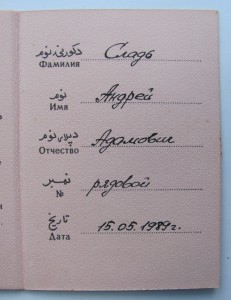 دکورنۍ نوم
Фамилия Сладь
نوم
Имя Андрей
دپلار نوم
Отчество Адамович
نمبر
№ рядовой
تاریخ
Дата 15.05.1989г.